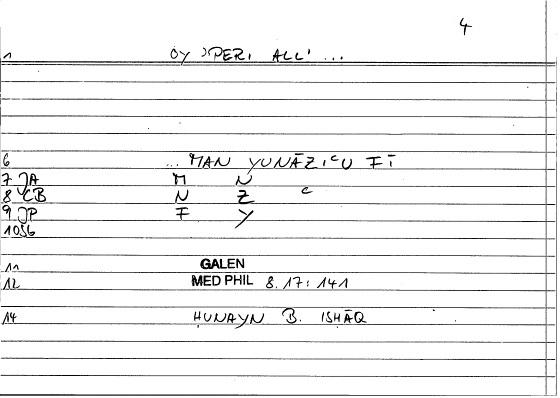 4
1 OY 'PERI ALL' ...
6 ... MAN YUNĀZIʿU FĪ
7 JA M N
8 CB N Z ʿ
9 JP F Y
1056
11 GALEN
12 MED PHIL 8.17: 141
14 ḤUNAYN B. ISḤĀQ